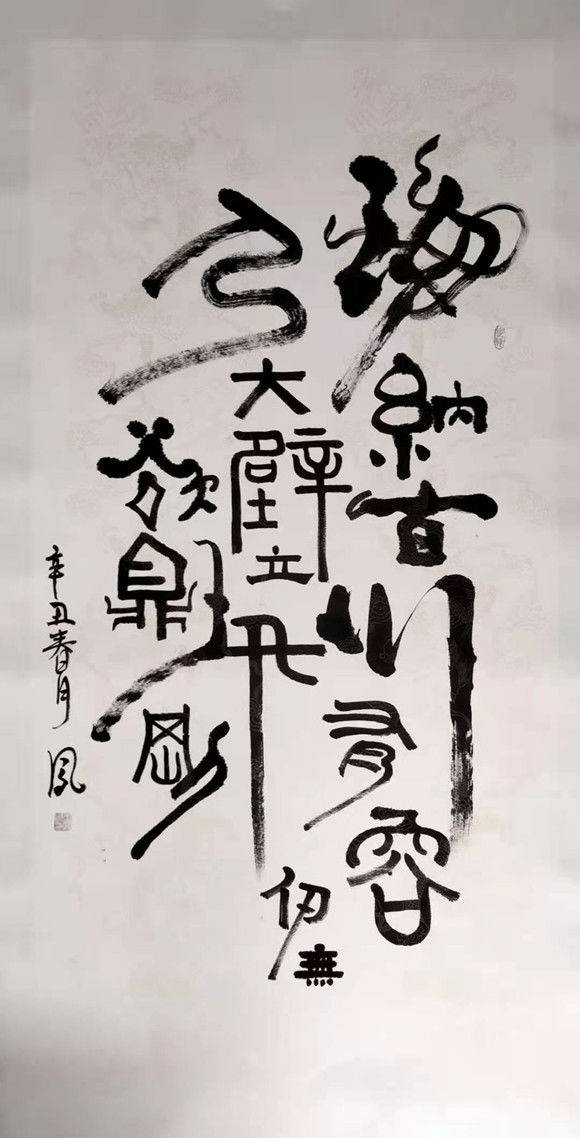 海納百川有容
乃大壁立千仞無
欲則剛
辛丑春月 鳳